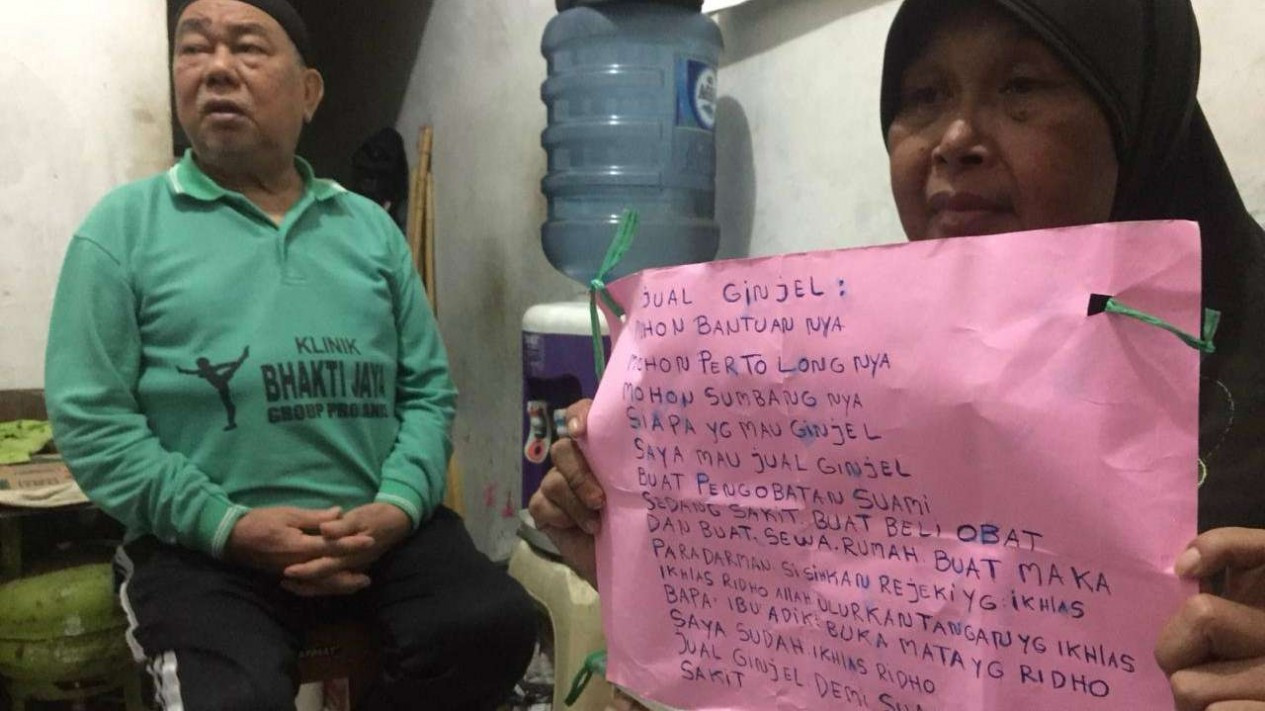 KLINIK
BHAKTI JAYA
JUAL GINJEL :
MOHON BANTUAN NYA
MOHON PERTOLONG NYA
MOHON SUMBANG NYA
SIAPA YG MAU GINJEL
SAYA MAU JUAL GINJEL
BUAT PENGOBATAN SUAMI
SEDANG SAKIT. BUAT BELI OBAT
DAN BUAT. SEWA. RUMAH. BUAT MAKA
PARADARMAN. SISIHKAN REJEKI YG. IKHLAS
IKHLAS RIDHO ALLAH. ULURKAN TANGAN YG IKHLAS
BAPA. IBU ADIK. BUKA MATA YG RIDHO
SAYA SUDAH IKHLAS RIDHO
JUAL GINJEL DEMI
SAKIT